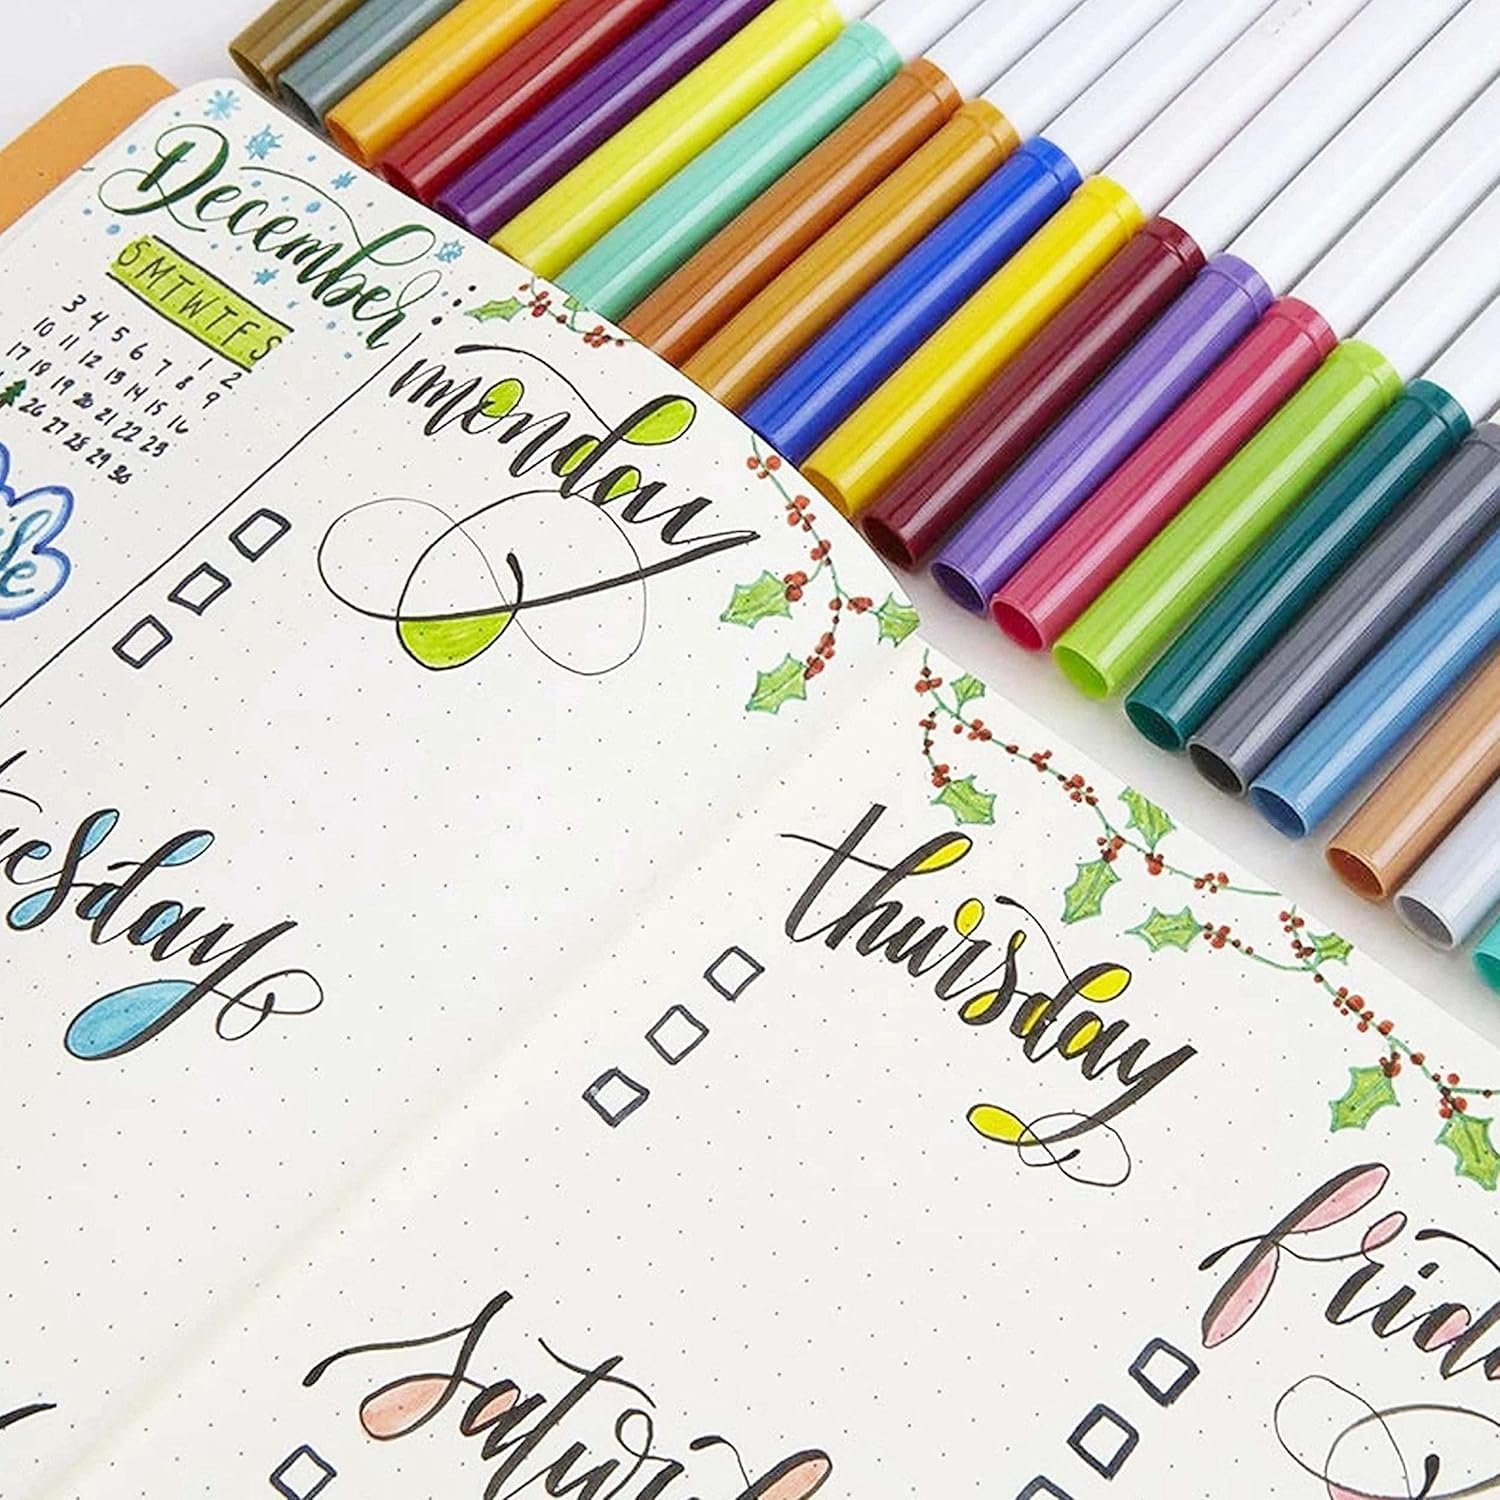 December
S M T W T F S
1 2
3 4 5 6 7 8 9
10 11 12 13 14 15 16
17 18 19 20 21 22 23
26 27 28 29 30
monday
tuesday
thursday
frida
satur